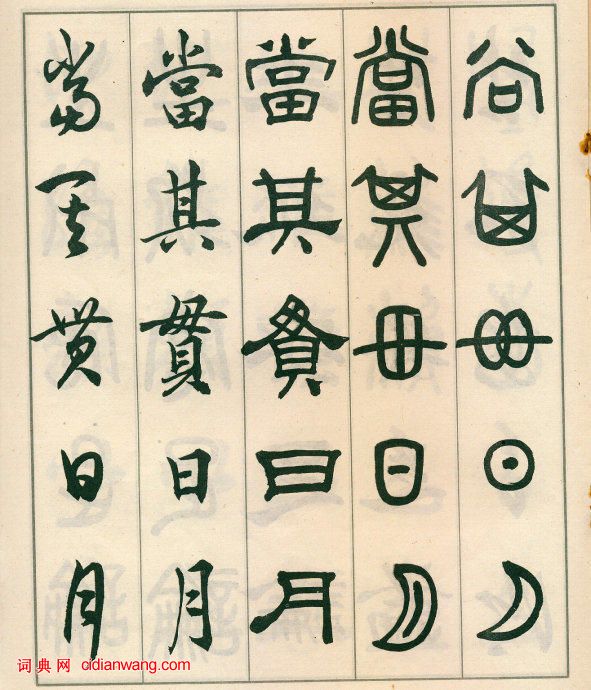 當其貫日月
當其貫日月
當其貫日月
當其貫日月
當其貫日月
词典网 cidianwang.com